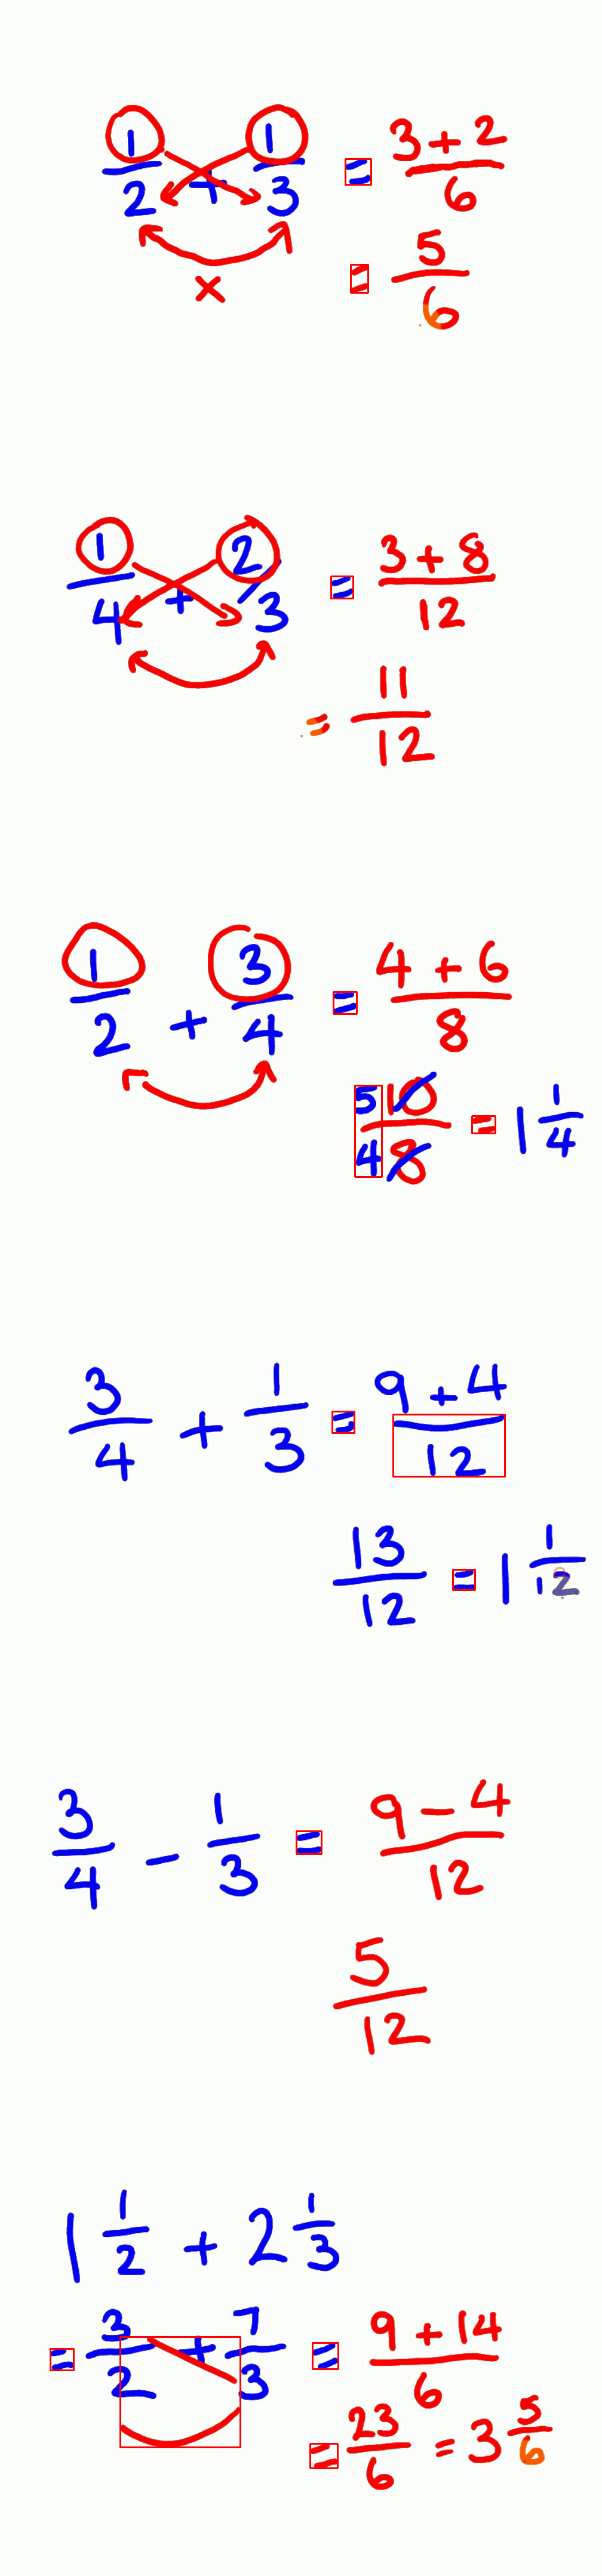 1/2 + 1/3 = (3 + 2)/6
×
= 5/6
1/4 + 2/3 = (3 + 8)/12
= 11/12
1/2 + 3/4 = (4 + 6)/8
5/4 10/8 = 1 1/4
3/4 + 1/3 = (9 + 4)/12
13/12 = 1 1/12
3/4 - 1/3 = (9 - 4)/12
5/12
1 1/2 + 2 1/3
= 3/2 + 7/3 = (9 + 14)/6
= 23/6 = 3 5/6